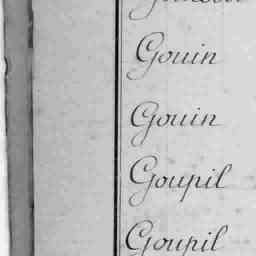 Gouin
Gouin
Goupil
Goupil